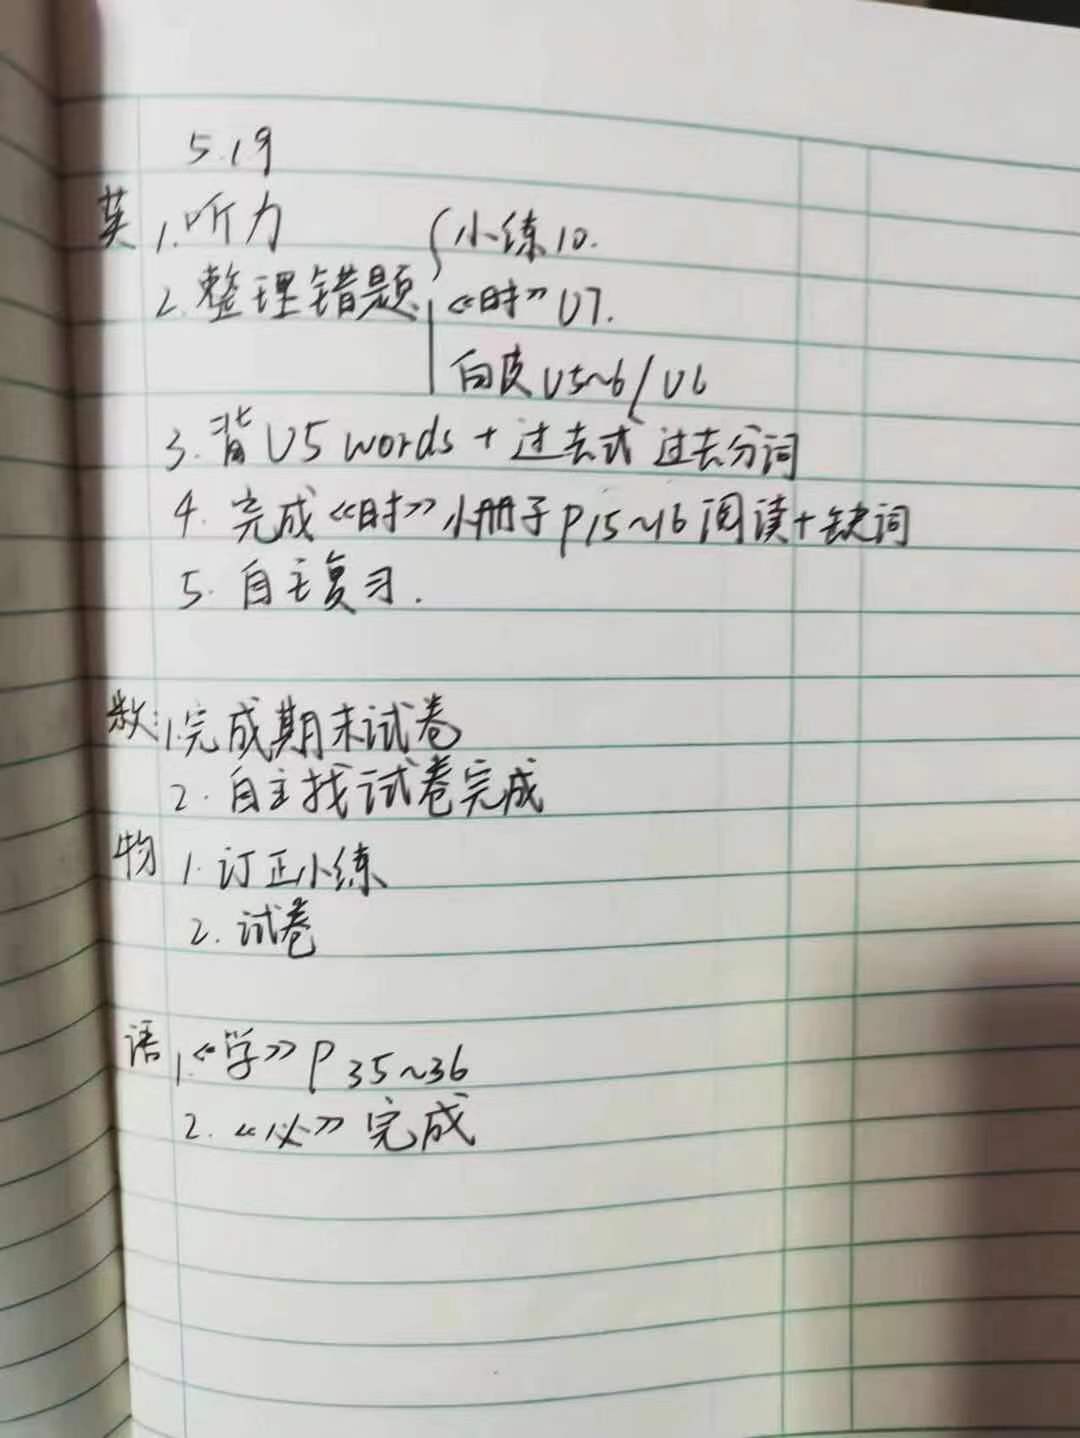 5.19
英 1.听力
2.整理错题 { 小练10.
《时》U7.
白皮U5~6/U6
3.背U5 words + 过去式 过去分词
4.完成《时》小册子P15~16阅读+缺词
5.自主复习.
数:1.完成期末试卷
2.自主找试卷完成
物 1.订正小练
2.试卷
语 1.《学》P35~36
2.《必》完成